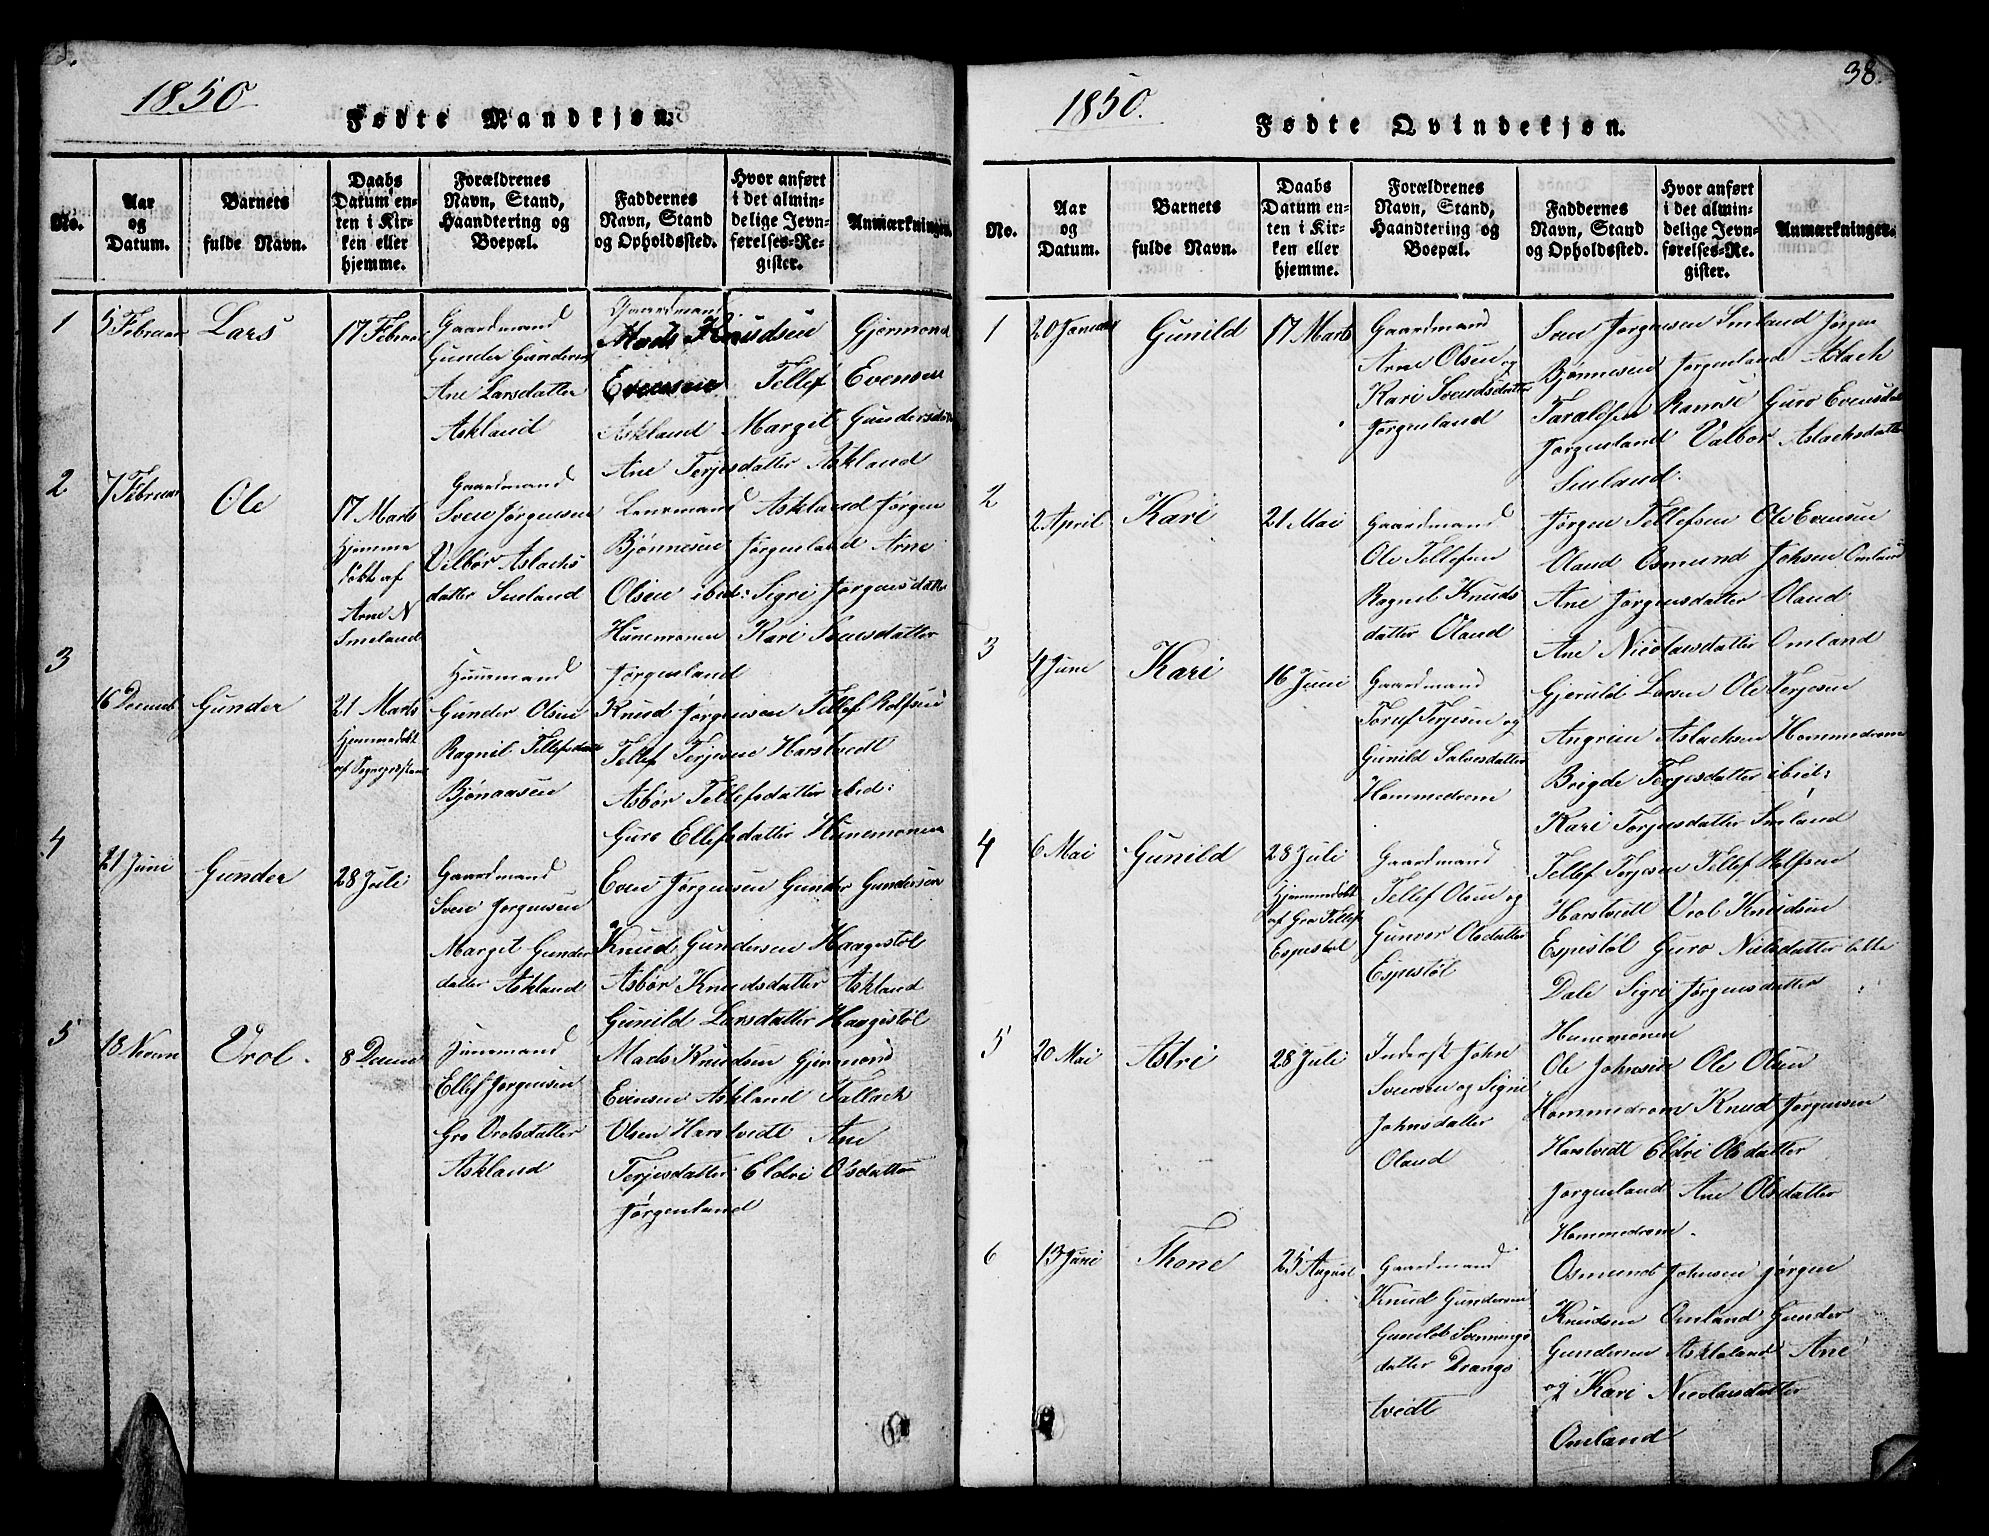 1850
Fødte Mandkjøn.
No.
Aar og Datum.
Barnets fulde Navn.
Daabs Datum enten i Kirken eller hjemme.
Forældrenes Navn, Stand, Haandtering og Boepæl.
Faddernes Navn, Stand og Opholdssted.
Hvor anført i det almindelige Jevnførelses-Register.
Anmærkninger.
1
5 Februar
Lars
17 Februar
Gaardmand
Gunder Gunders
Ane Larsdatter
Askland
Gaardmand
Mads Knudsen Gjermond
Evensen Tellef Evensen
Askland Margit Gundersdatter
Ane Terjesdatter Askland
2
7 Februar
Ole
17 Marts
Hjemme
døbt af
Arne N
Smeland
Gaardmand
Sven Jørgensen
Valbor Aslachs
datter Smland
Lensmand Askland Jørgen
Bjønnesen Jørgenland Arne
Olsen ibid: Sigri Jørgensdatter
Hunemonen Kari Svensdatter
Jørgenland
3
16 Decemb
Gunder
21 Marts
Hjemmedøbt
Huusmand
Gunder Olsen
Ragnil Tellefsdatter
Bjønaasen
Knud Jørgensen Tellef Rolfsen
Tellef Terjesen Harstvedt
Asbør Tellefsdatter ibid:
Guro Ellefsdatter Hunemonen
4
21 Juni
Gunder
28 Juli
Gaardmand
Sven Jørgensen
Marget Gunder
datter Askland
Even Jørgensen Gunder Gundersen
Knud Gundersen Haagestøl
Asbør Knudsdatter Askland
Gunild Larsdatter Haagestøl
5
18 Novem
Vrol.
8 Decem
Huusmand
Ellef Jørgensen
Gro Vrolsdatter
Askland
Mads Knudsen Gjermond
Evensen Askland Tallach
Olsen Harstvedt Ane
Terjesdatter Eldri Olsdatter
Jørgenland
38.
1850.
Fødte Qvindekjøn.
No.
Aar og Datum.
Barnets fulde Navn.
Daabs Datum enten i Kirken eller hjemme.
Forældrenes Navn, Stand, Haandtering og Boepæl.
Faddernes Navn, Stand og Opholdssted.
Hvor anført i det almindelige Jevnførelses-Register.
Anmærkninger.
1
20 Januar
Gunild
17 Marts
Gaardmand
Arne Olsen og
Kari Svendsdatter
Jørgenland
Sven Jørgensen Smland Jørgen
Bjønnesen Jørgenland Aslach
Taralsen Ramse Guro Evensdatter
Jørgenland Valbor Aslachsdatter
Smland.
2
2 April
Kari
21 Mai
Gaardmand
Ole Tellefsen
Ragnil Knuds
datter Oland
Jørgen Tellefsen Ole Evensen
Oland Osmund Johsen Omland
Ane Jørgensdatter Oland
Ane Nicolaisdatter Omland
3
4 June
Kari
16 Juni
Gaardmand
Toruf Terjesen og
Gunild Salvesdatter
Hommedrom
Gjeruld Larsen Ole Terjesen
Angrim Aslachsen Hommedrom
Brigde Terjesdatter ibid:
Kari Torjusdatter Smland
4
6 Mai
Gunild
28 Juli
Hjemmedøbt
af Gro Tellef
Espestøl
Gaardmand
Tellef Olsen og
Gunvor Olsdatter
Espestøl
Tellef Torjesen Tellef Rolfsen
Harstvedt Vrol Knudsen
Espestøl Guro Nielsdatter
Dale Sigri Jørgensdatter
Hunemonen
5
20 Mai
Astri
28 Juli
Inderst John
Svensen og Signe
Johnsdatter
Oland
Ole Johnsen Ole Olsen
Hommedrom Knud Jørgensen
Harstvedt Eldri Olsdatter
Jørgenland Ane Olsdatter
Hommedrom.
6
13 Juni
Thone
25 August
Gaardmand
Knud Gundersen
Gunild Svennings
datter Drangs
tvedt
Osmund Johnsen Jørgen
Knudsen Omland Gunder
Gundersen Askland Ane
og Kari Nicolaisdatter
Omland